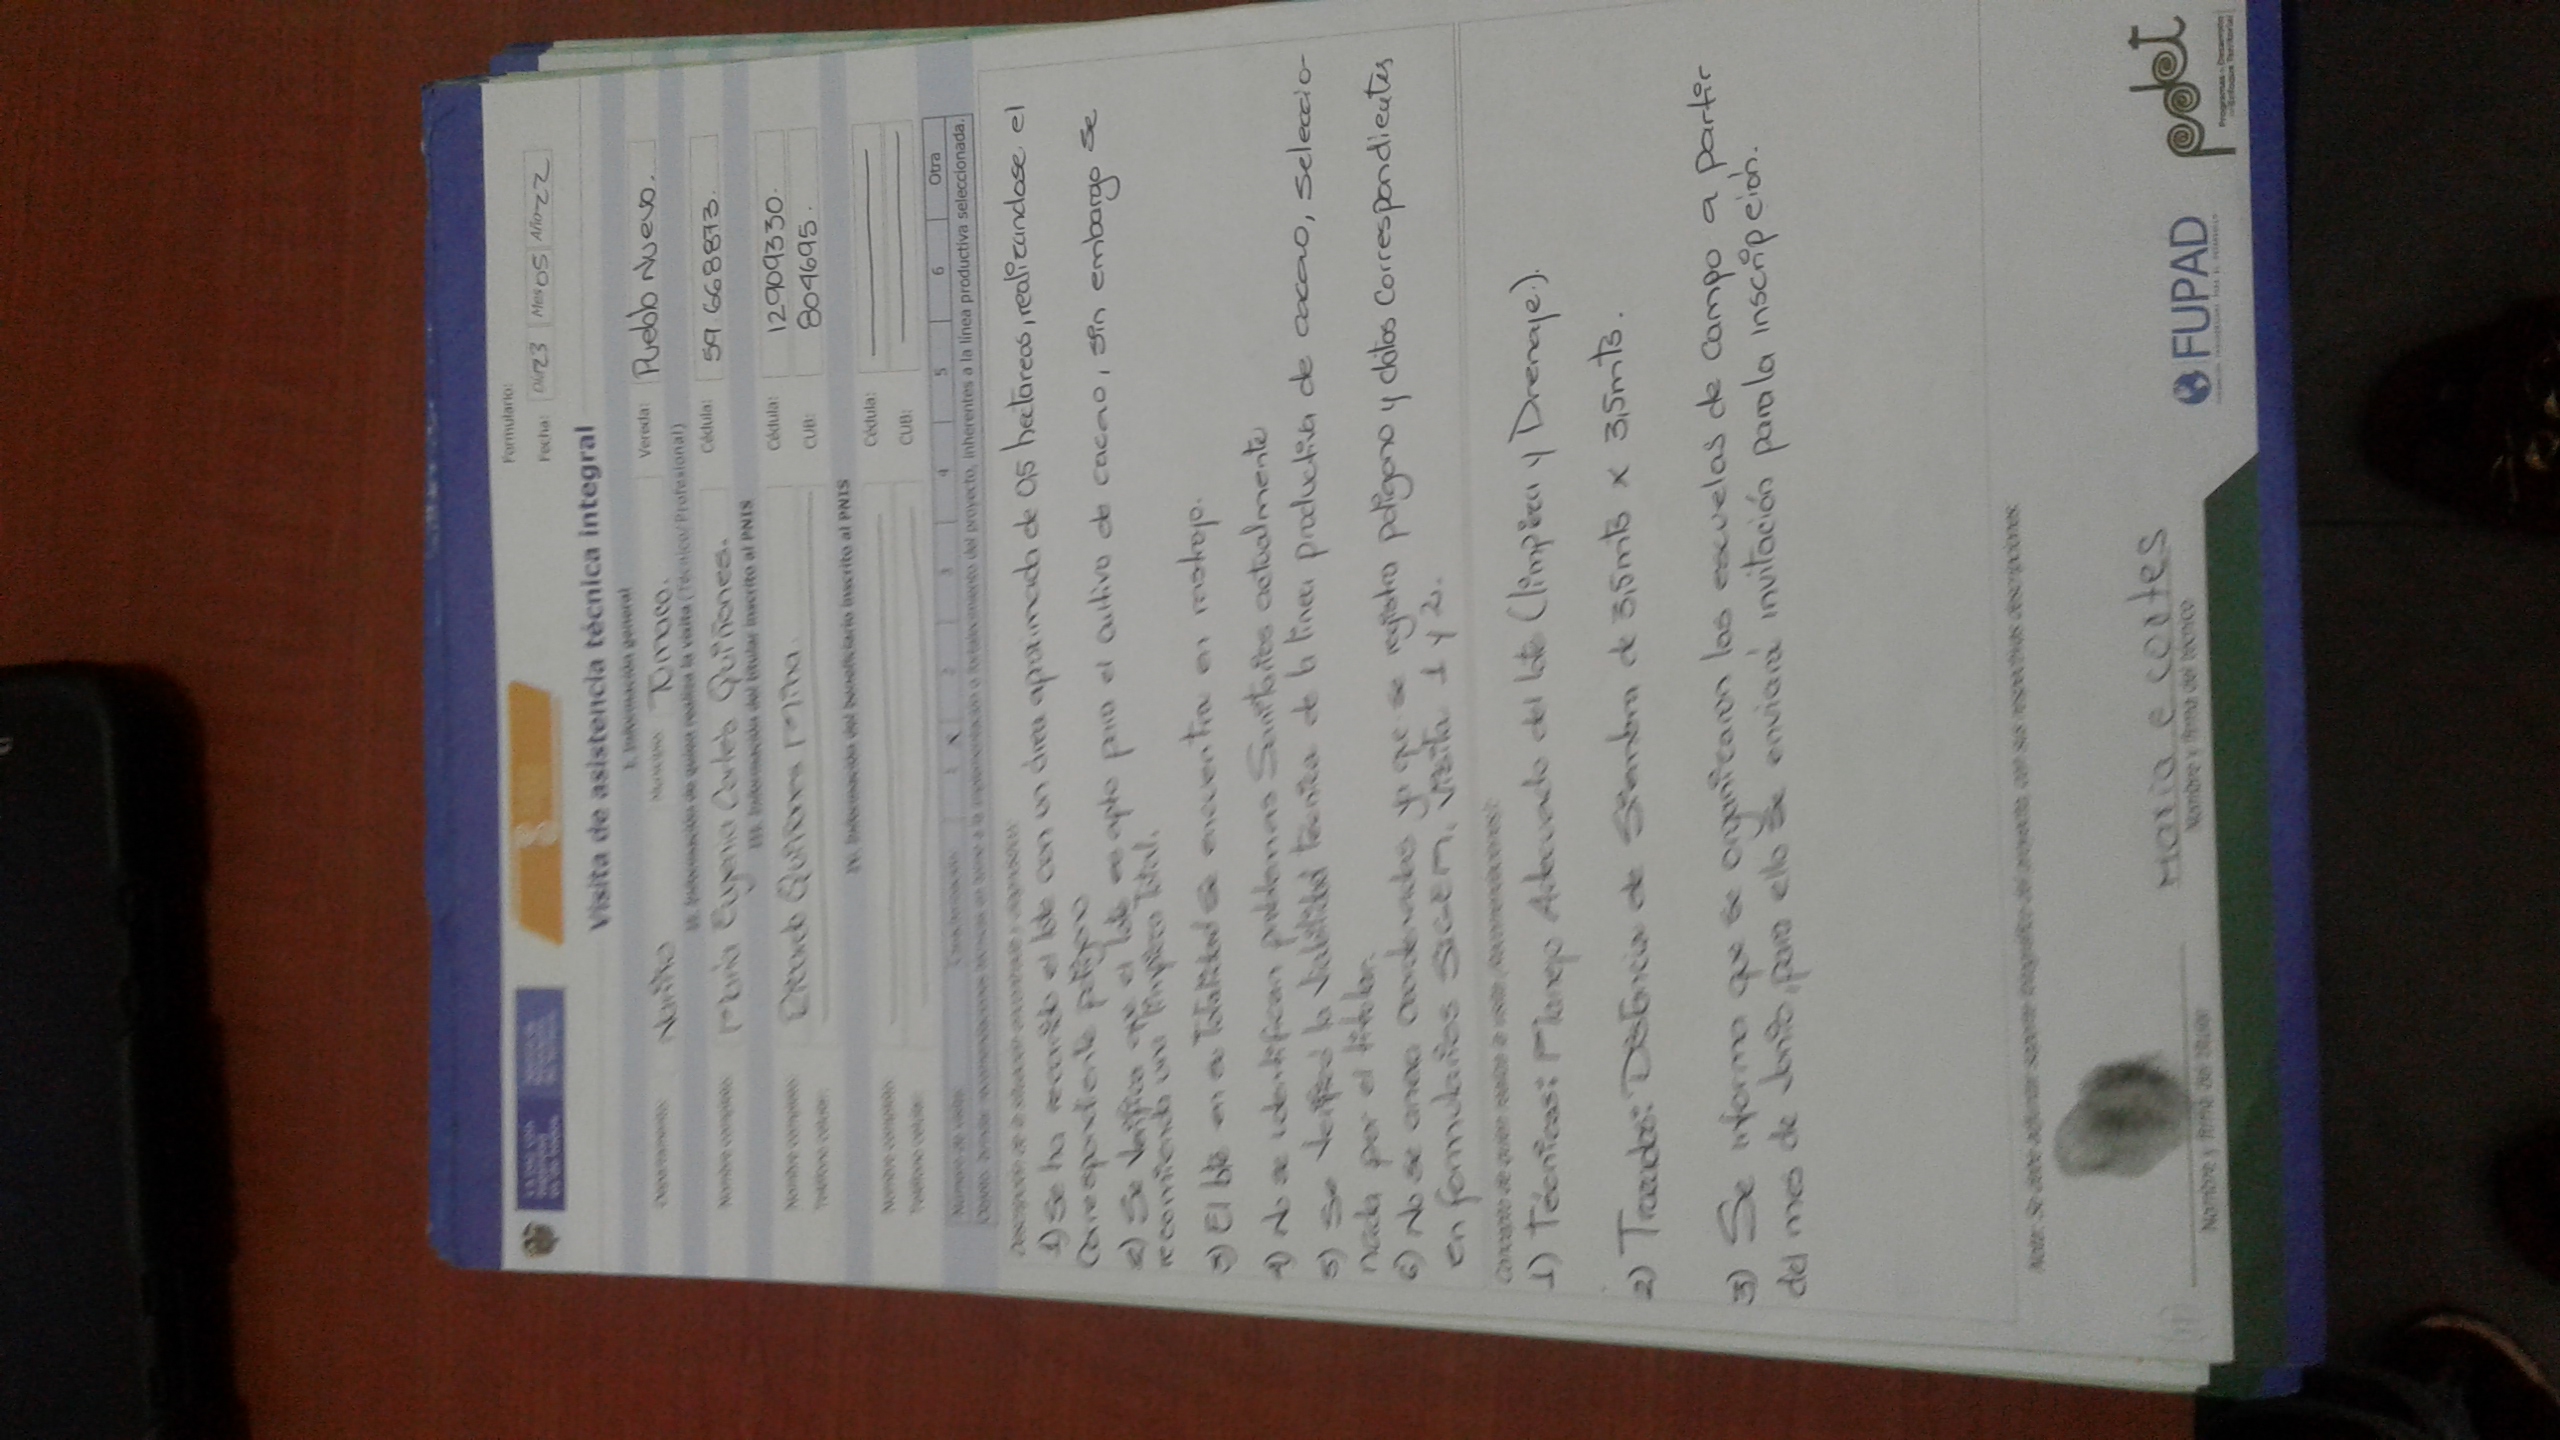 Formulario:
Fecha: Día 23 Mes 05 Año 22
Visita de asistencia técnica integral
I. Información general
Departamento: Nariño Municipio: Tumaco. Vereda: Pueblo Nuevo.
II. Información de quien realiza la visita (Técnico/Profesional)
Nombre completo: Maria Eugenia Cortes Quiñones. Cédula: 59.668873.
III. Información del titular inscrito al PNIS
Nombre completo: Quiñones Mina. Cédula: 12909330.
Teléfono celular: CUB: 804695.
IV. Información del beneficiario inscrito al PNIS
Nombre completo: Cédula:
Teléfono celular: CUB:
Número de visita 1 X 2 3 4 5 6 Otra
inherentes a la línea productiva seleccionada.
1) Se ha recorrido el lote con un área aproximada de 05 hectareas, realizandose el
correspondiente poligono
2) Se Verifica que el lote es apto para el cultivo de cacao, sin embargo se
recomienda una limpieza Total.
3) El lote en su Totalidad se encuentra en rastrojo.
4) No se identifican problemas Sanitarios actualmente
5) Se Verifica la Viabilidad Tecnica de la linea productiva de cacao, seleccio-
nada por el titular.
6) No se anexa coordenadas ya que se registro poligono y datos Correspondientes
en formularios SIGEM. Visita 1 y 2.
1) Técnicas: Manejo Adecuado del lote (limpieza y Drenaje).
2) Trazado: Distancia de Siembra de 3,5mts x 3,5mts.
3) Se informa que se organizaran las escuelas de Campo a partir
del mes de Junio, para ello se enviará invitación para la inscripción.
Maria e cortes
Nombre y firma del titular Nombre y firma del técnico
FUPAD
pdet
Programas de Desarrollo
con Enfoque Territorial